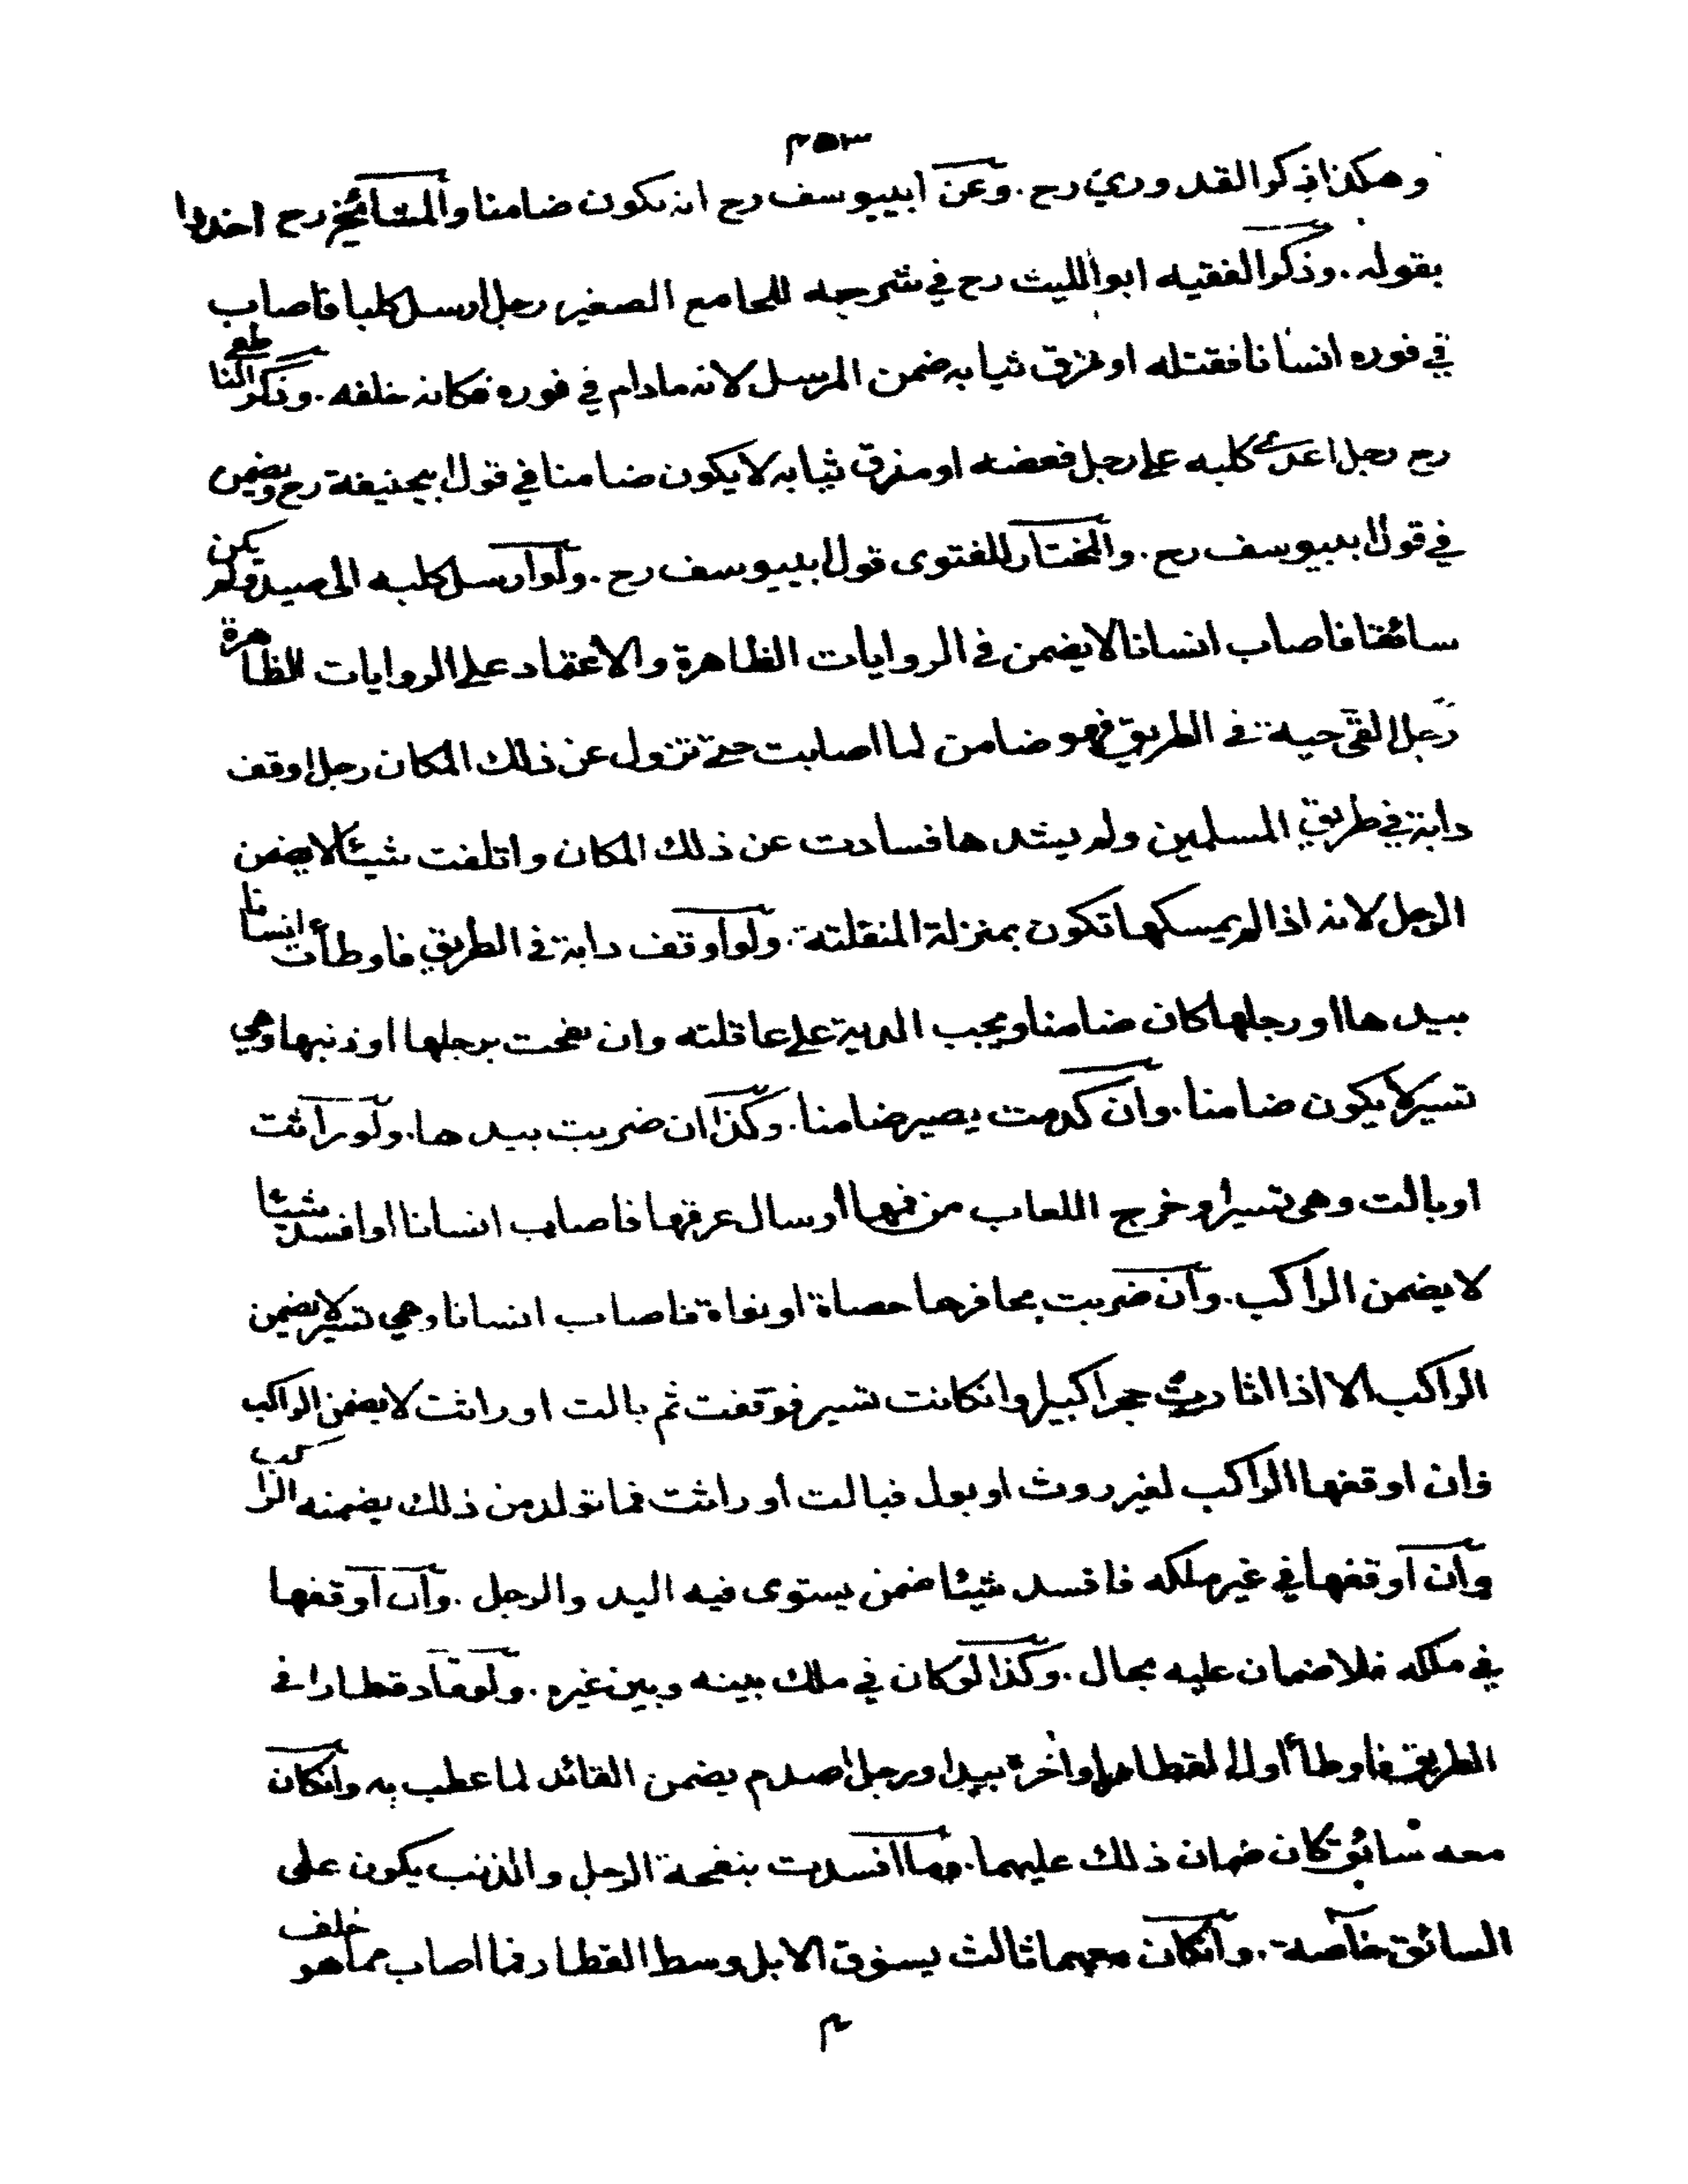 ٣٥٣
وهكذا ذكر القدوري رح . وعن ابييوسف رح انه يكون ضامنا والمشائخ رح اخذوا
بقوله . وذكر الفقيه ابو الليث رح في شرحه للجامع الصغير رجل ارسل كلبا فاصاب
في فوره انسانا فقتله او مزق ثيابه ضمن المرسل لانه مادام في فوره فكانه خلفه . وذكر الناطفي
رح رجل اغرى كلبه على رجل فعضه او مزق ثيابه لا يكون ضامنا في قول ابيحنيفة رح ويضمن
في قول ابييوسف رح . والمختار للفتوى قول ابييوسف رح . ولو ارسل كلبه الى صيد ولم يكن
سائقا فاصاب انسانا لا يضمن في الروايات الظاهرة والاعتماد على الروايات الظاهرة
رجل القى حية في الطريق فهو ضامن لما اصابت حتى تزول عن ذلك المكان رجل اوقف
دابة في طريق المسلمين ولم يشدها فسارت عن ذلك المكان واتلفت شيئا لا يضمن
الرجل لانه اذا لم يمسكها تكون بمنزلة المنفلتة . ولو اوقف دابة في الطريق فاوطأت انسانا
بيدها او رجلها كان ضامنا ويجب الدية على عاقلته وان نفحت برجلها او ذنبها وهي
تسير لا يكون ضامنا . وان كدمت يصير ضامنا . وكذا ان ضربت بيدها . ولو راثت
او بالت وهي تسير او خرج اللعاب من فمها او سال عرقها فاصاب انسانا او افسد شيئا
لا يضمن الراكب . وان ضربت بحافرها حصاة او نواة فاصاب انسانا وهي تسير لا يضمن
الراكب الا اذا اثارت حجرا كبيرا وانكانت تسير فوقفت ثم بالت او راثت لا يضمن الراكب
وان اوقفها الراكب لغير روث او بول فبالت او راثت فما تولد من ذلك يضمنه الراكب
وان اوقفها في غير ملكه فافسد شيئا ضمن يستوى فيه اليد والرجل . وان اوقفها
في ملكه فلا ضمان عليه بحال . وكذا لو كان في ملك بينه وبين غيره . ولو قاد قطارا في
الطريق فاوطأ اول القطار او اخره بيد او رجل او صدم يضمن القائد لما عطب به وانكان
معه سائق كان ضمان ذلك عليهما . وما افسدت بنفحة الرجل والذنب يكون على
السائق خاصة . وانكان معهما ثالث يسوق الابل وسط القطار فما اصاب مما هو خلف
م